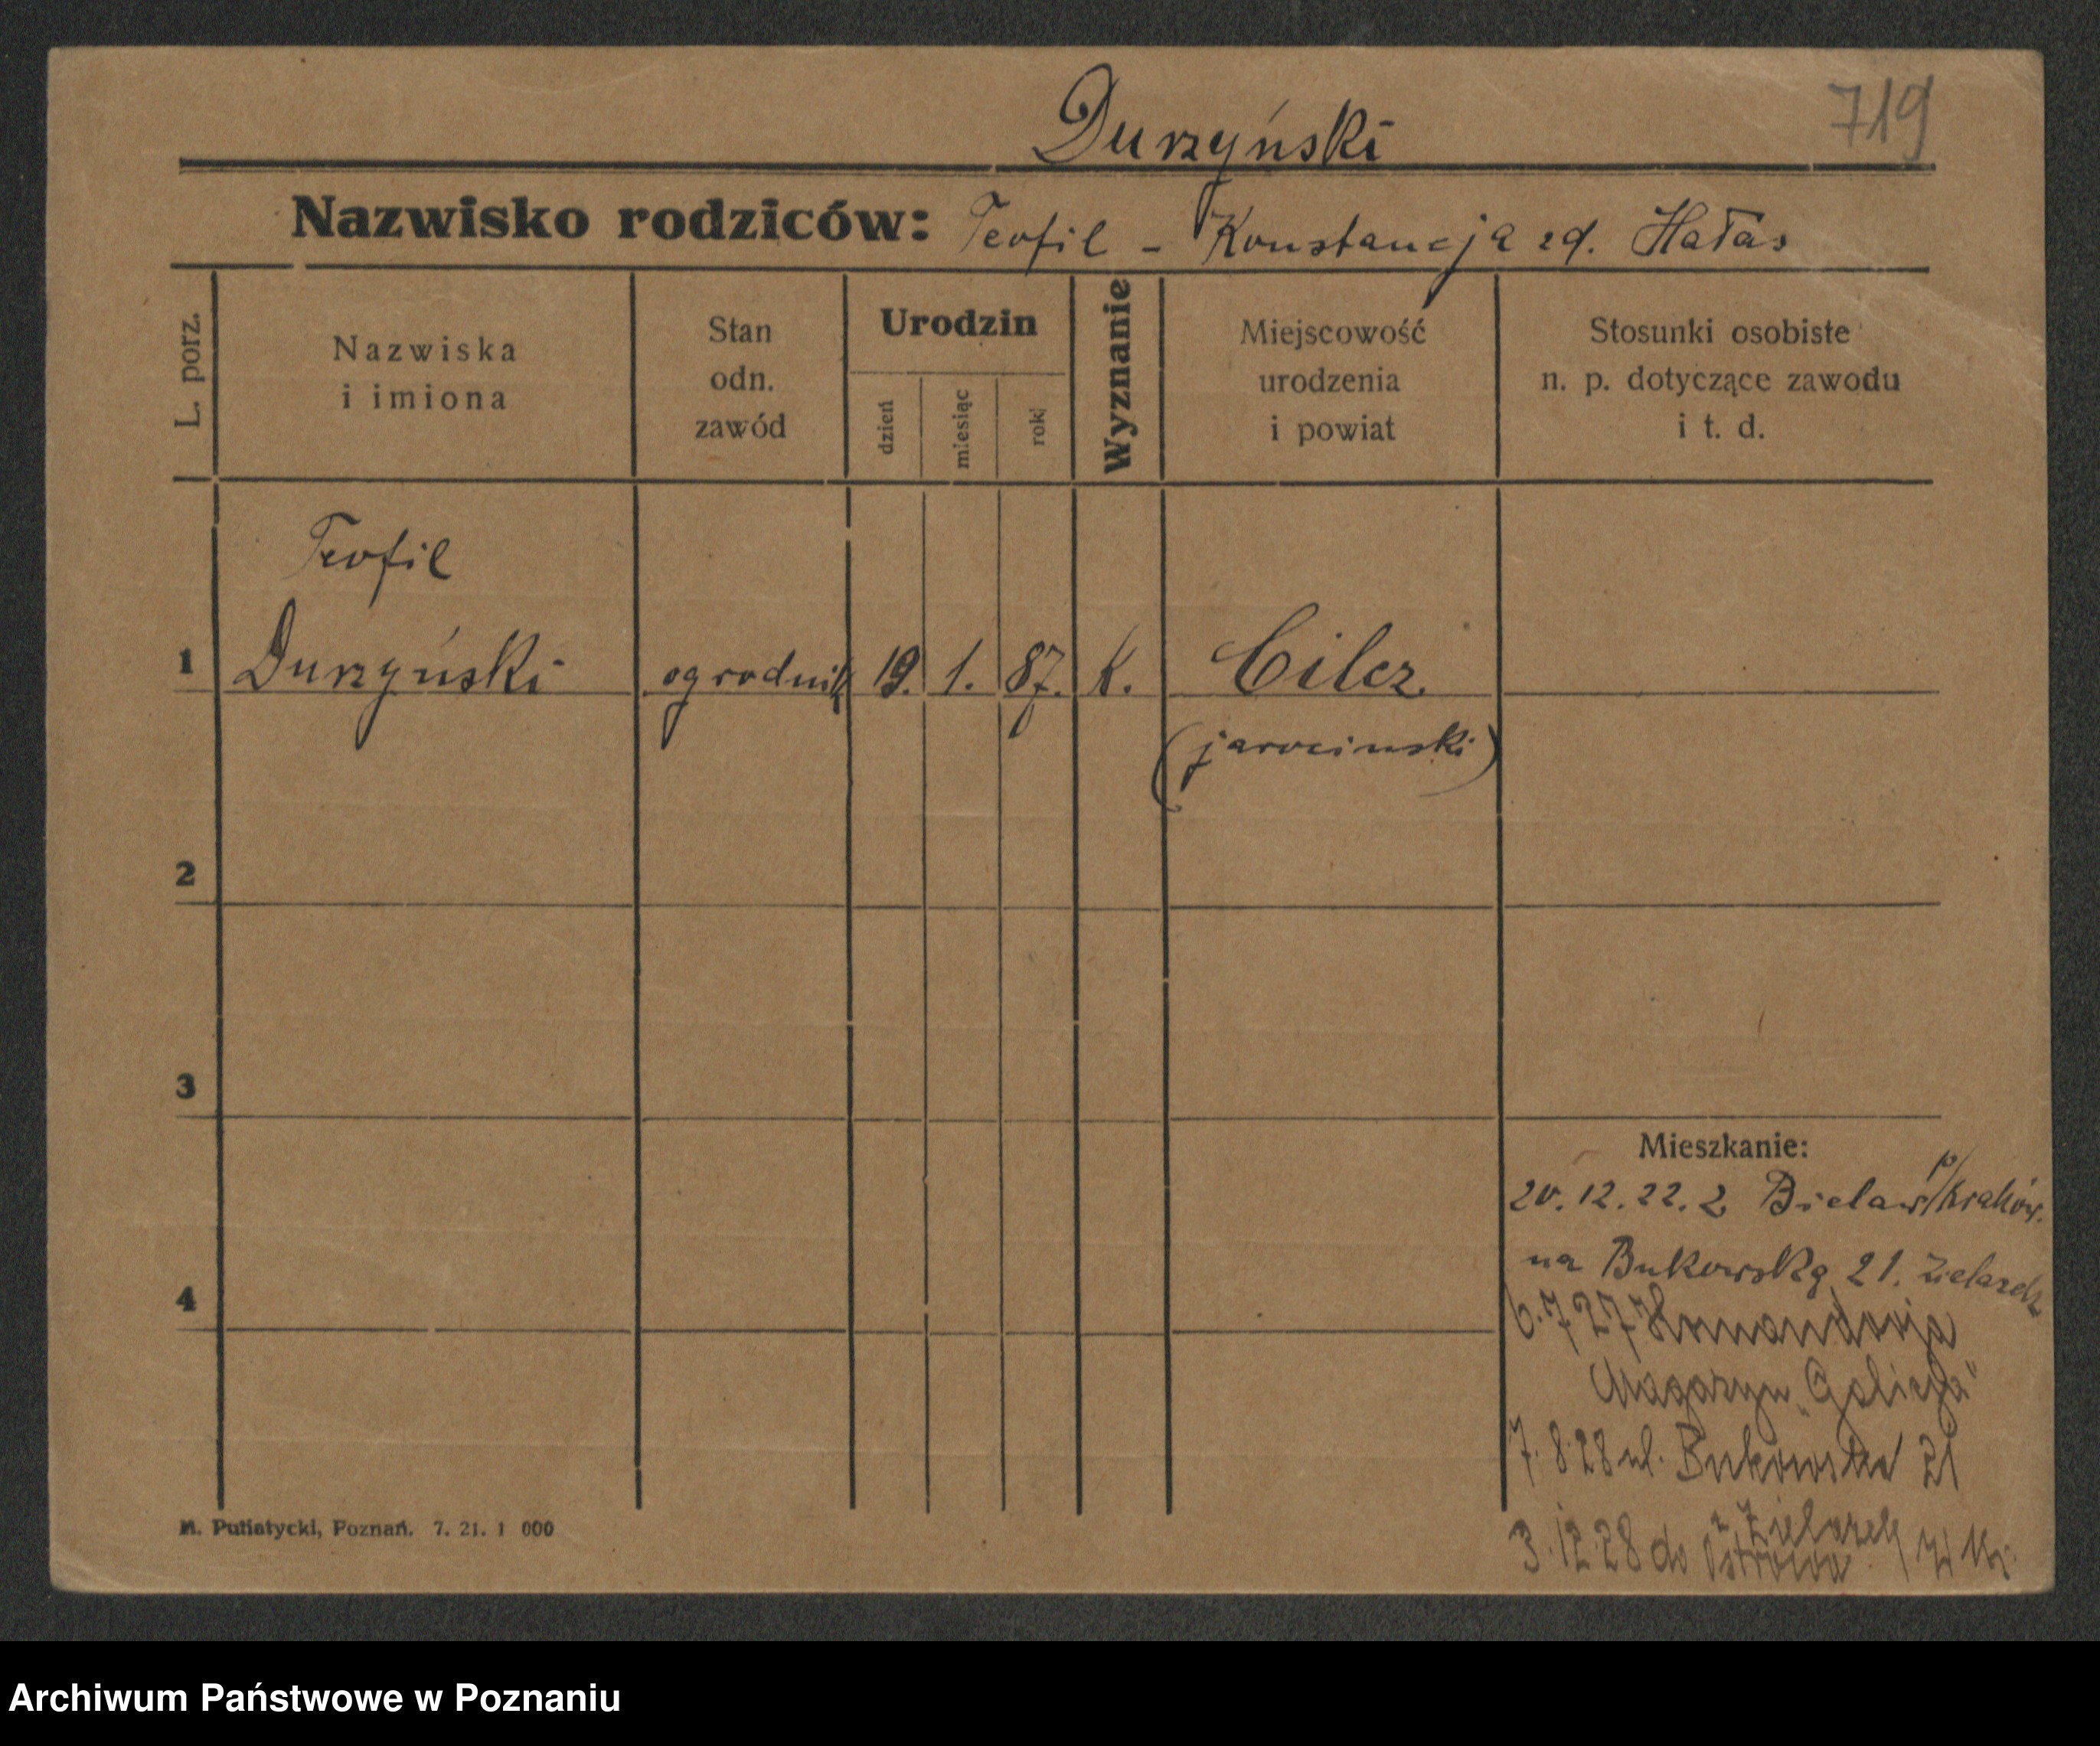 719
Durzyński
Nazwisko rodziców: Teofil - Konstancja zd. Hałas
L. porz.
Nazwiska
i imiona
Stan
odn.
zawód
Urodzin
dzień
miesiąc
rok
Wyznanie
Miejscowość
urodzenia
i powiat
Stosunki osobiste
n. p. dotyczące zawodu
i t. d.
Teofil
1 Durzyński ogrodnik 19. 1. 87. K. Cilcz
(jarocinski)
2
3
4
Mieszkanie:
20. 12. 22. z Bielaw p/Kraków.
na Bukowską 21.
6.7 27 Komandorja
Magazyn "Galicja"
7. 8 28 ul. Bukowska 21
3. 12 28 do Ostrowa
M. Putiatycki, Poznań. 7. 21. 1 000
Archiwum Państwowe w Poznaniu